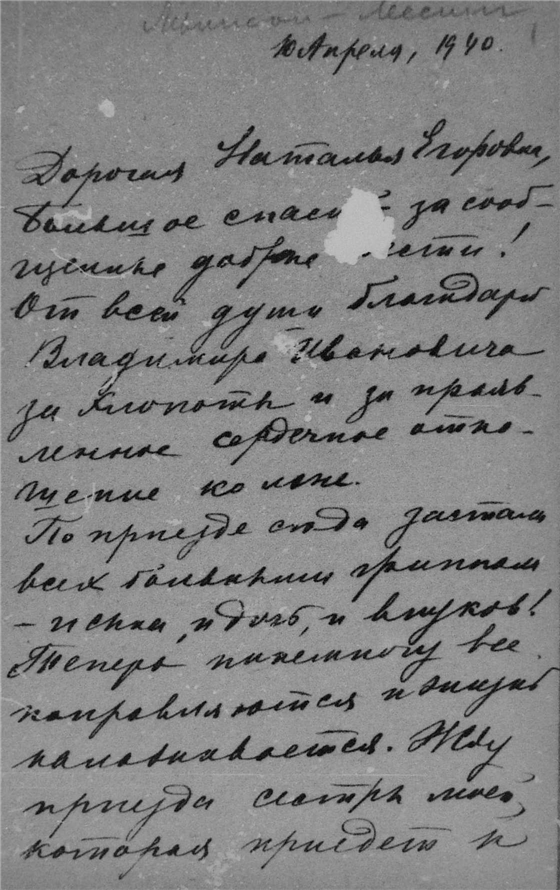 10 Апреля, 1940.
Дорогая Наталья Егоровна,
большое спасибо за сооб-
щение доброе вести!
От всей души благодарю
Владимира Ивановича
за хлопоты и за прояв-
ленное сердечное отно-
шение ко мне.
По приезде сюда застала
всех больными гриппом
– и сына, и дочь, и внуков!
Теперь понемногу все
поправляются и жизнь
налаживается. Жду
приезда сестры моей,
которая приедет к